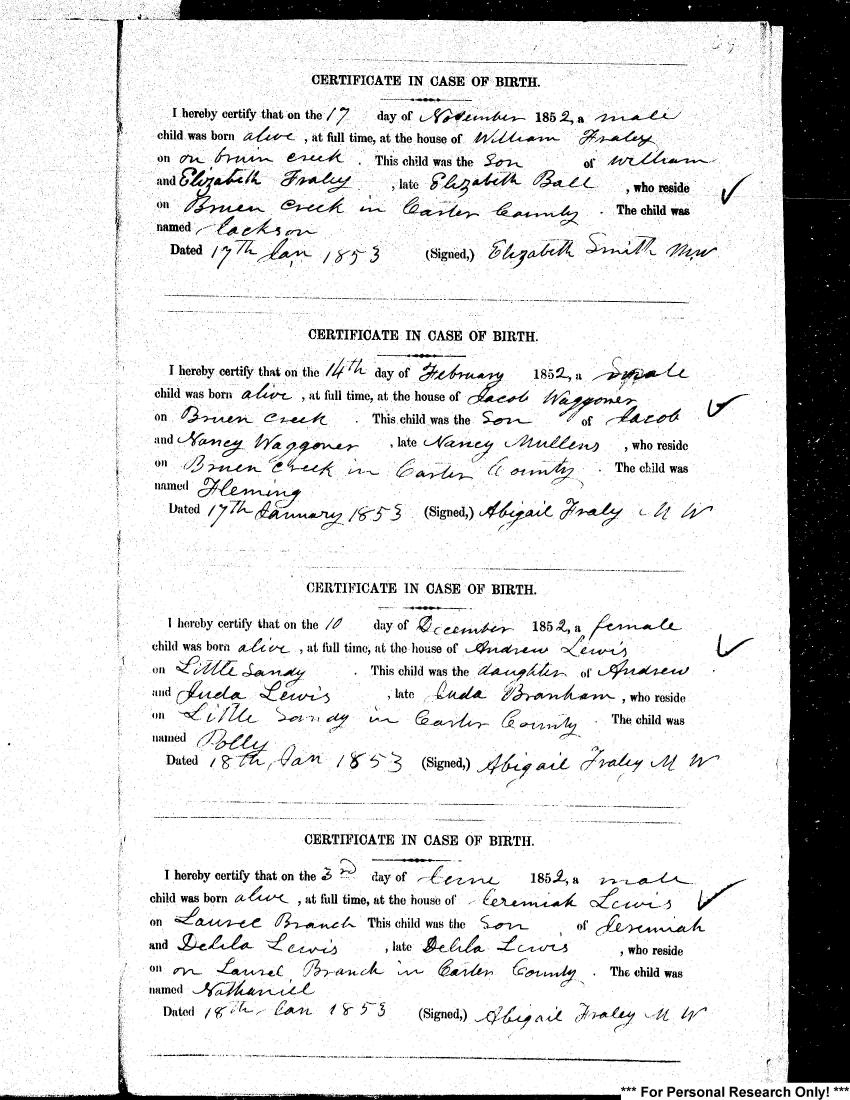 69
CERTIFICATE IN CASE OF BIRTH.
I hereby certify that on the 17 day of November 1852, a male
child was born alive, at full time, at the house of William Fraley
on on bruin creek. This child was the Son of William
and Elizabeth Fraley, late Elizabeth Ball, who reside
on Bruen Creek in Carter County. The child was
named Jackson
Dated 17th Jan 1853 (Signed,) Elizabeth Smith MW
CERTIFICATE IN CASE OF BIRTH.
I hereby certify that on the 14th day of February 1852, a male
child was born alive, at full time, at the house of Jacob Waggoner
on Bruen Creek. This child was the Son of Jacob
and Nancy Waggoner, late Nancy Mullens, who reside
on Bruen Creek in Carter County. The child was
named Fleming
Dated 17th January 1853 (Signed,) Abigail Fraly M W
CERTIFICATE IN CASE OF BIRTH.
I hereby certify that on the 10 day of December 1852, a female
child was born alive, at full time, at the house of Andrew Lewis
on Little Sandy. This child was the daughter of Andrew
and Juda Lewis, late Juda Branham, who reside
on Little Sandy in Carter County. The child was
named Polly
Dated 18th, Jan 1853 (Signed,) Abigail Fraley M W
CERTIFICATE IN CASE OF BIRTH.
I hereby certify that on the 3rd day of June 1852, a male
child was born alive, at full time, at the house of Jeremiah Lewis
on Laurel Branch This child was the Son of Jeremiah
and Delila Lewis, late Delila Lewis, who reside
on on Laurel Branch in Carter County. The child was
named Nathaniel
Dated 18th Jan 1853 (Signed,) Abigail Fraley M W
*** For Personal Research Only! ***